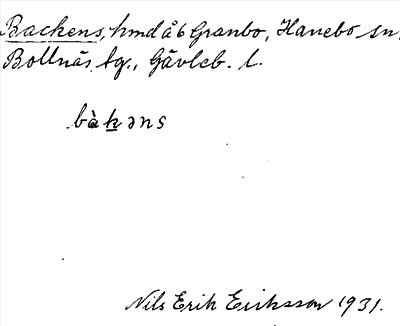 Backens, hmd å 6 Granbo, Hanebo sn,
Bollnäs tg., Gävleb. l.
bàk̲əns
Nils Erik Eriksson 1931.